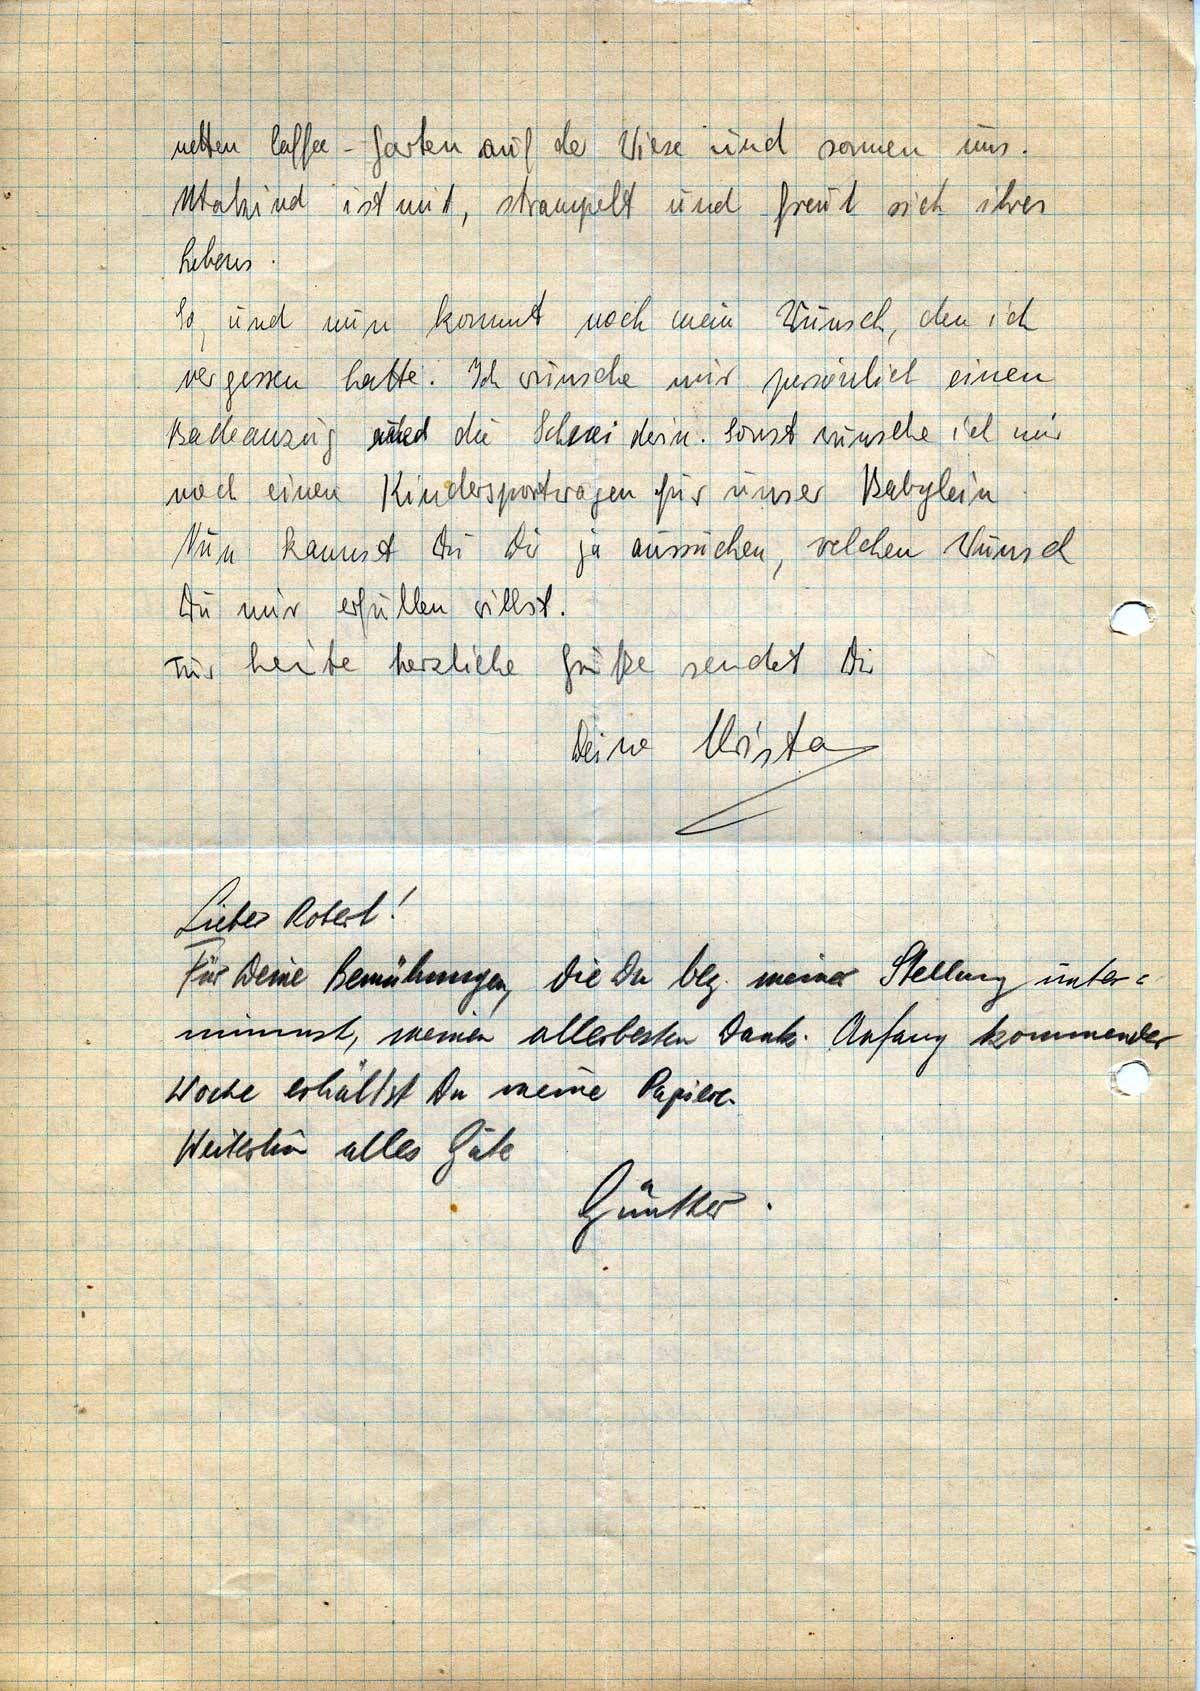 netten Caffee-Garten auf der Wiese und sonnen uns.
Utakind ist mit, strampelt und freut sich ihres
Lebens.
So, und nun kommt noch mein Wunsch, den ich
vergessen hatte. Ich wünsche mir persönlich einen
Badeanzug die Schneiderin. Sonst wünsche ich mir
noch einen Kindersportwagen für unser Babylein.
Nun kannst Du Dir ja aussuchen, welchen Wunsch
Du mir erfüllen willst.
Für heute herzliche Grüße sendet Dir
Deine Krista
Lieber Robert!
Für Deine Bemühungen, die Du bez. meiner Stellung unter=
nimmst, meinen allerbesten Dank. Anfang kommender
Woche erhältst Du meine Papiere.
Weiterhin alles Gute
Günther.